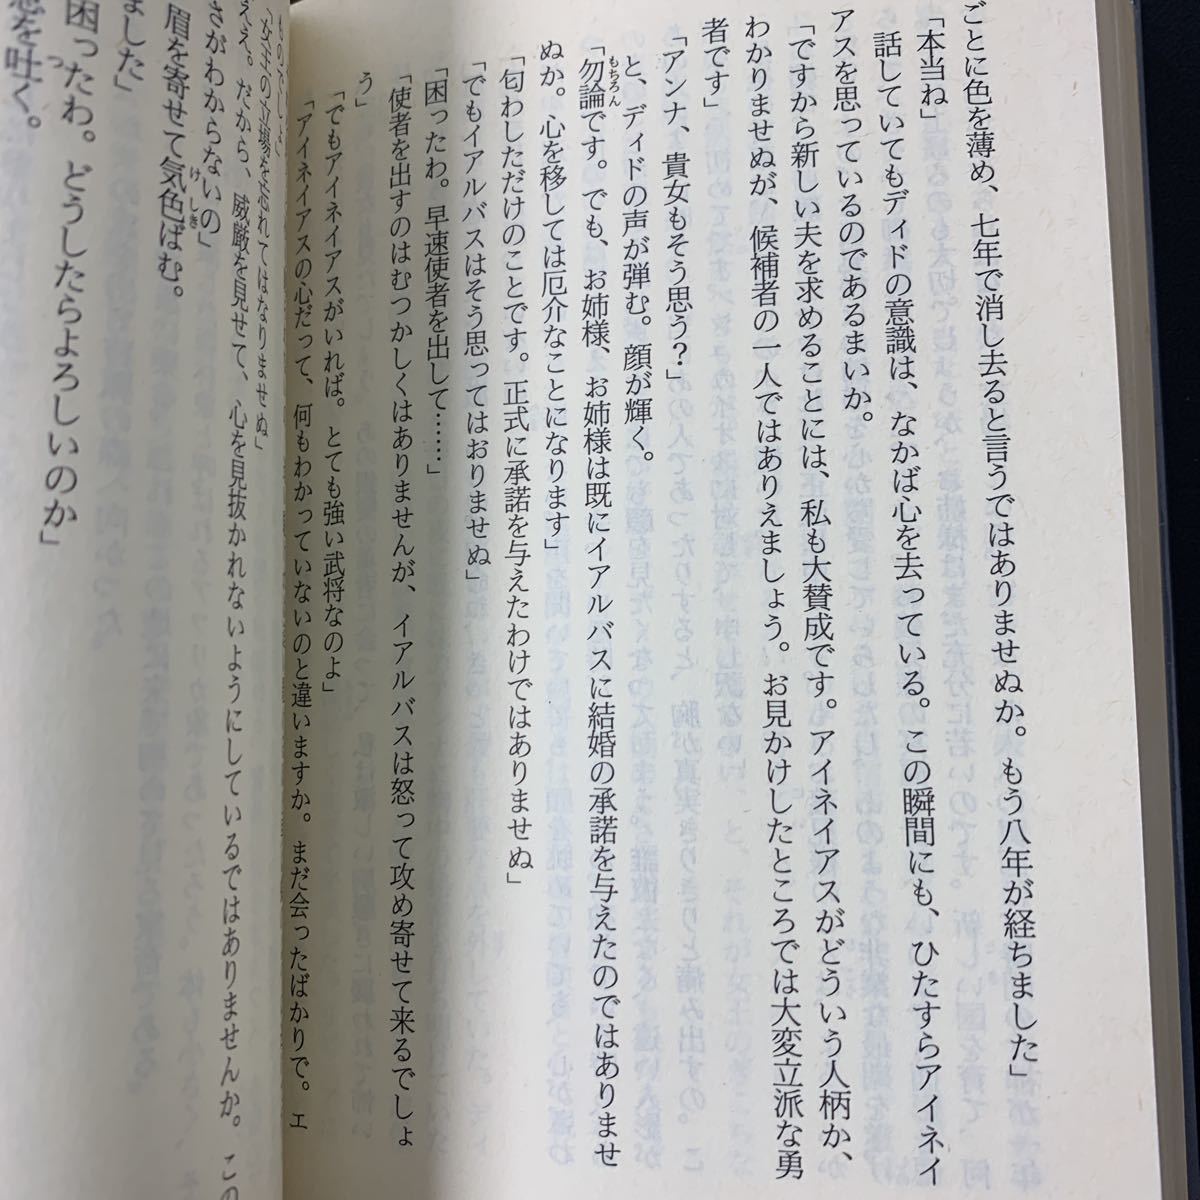 ごとに色を薄め、七年で消し去ると言うではありませぬか。もう八年が経ちました」
「本当ね」
話していてもディドの意識は、なかば心を去っている。この瞬間にも、ひたすらアイネイ
アスを思っているのであるまいか。
「ですから新しい夫を求めることには、私も大賛成です。アイネイアスがどういう人柄か、
わかりませぬが、候補者の一人ではありえましょう。お見かけしたところでは大変立派な勇
者です」
「アンナ、貴女もそう思う？」
と、ディドの声が弾む。顔が輝く。
「勿論もちろんです。でも、お姉様、お姉様は既にイアルバスに結婚の承諾を与えたのではありませ
ぬか。心を移しては厄介なことになります」
「匂わしただけのことです。正式に承諾を与えたわけではありませぬ」
「でもイアルバスはそう思ってはおりませぬ」
「困ったわ。早速使者を出して……」
「使者を出すのはむつかしくはありませんが、イアルバスは怒って攻め寄せて来るでしょ
う」
「でもアイネイアスがいれば。とても強い武将なのよ」
「アイネイアスの心だって、何もわかっていないのと違いますか。まだ会ったばかりで。エ
ものでしょ」
「女王の立場を忘れてはなりませぬ」
ええ。だから、威厳を見せて、心を見抜かれないようにしているではありませんか。この
さがわからないの」
眉を寄せて気色けしきばむ。
ました」
困ったわ。どうしたらよろしいのか」
を吐つく。